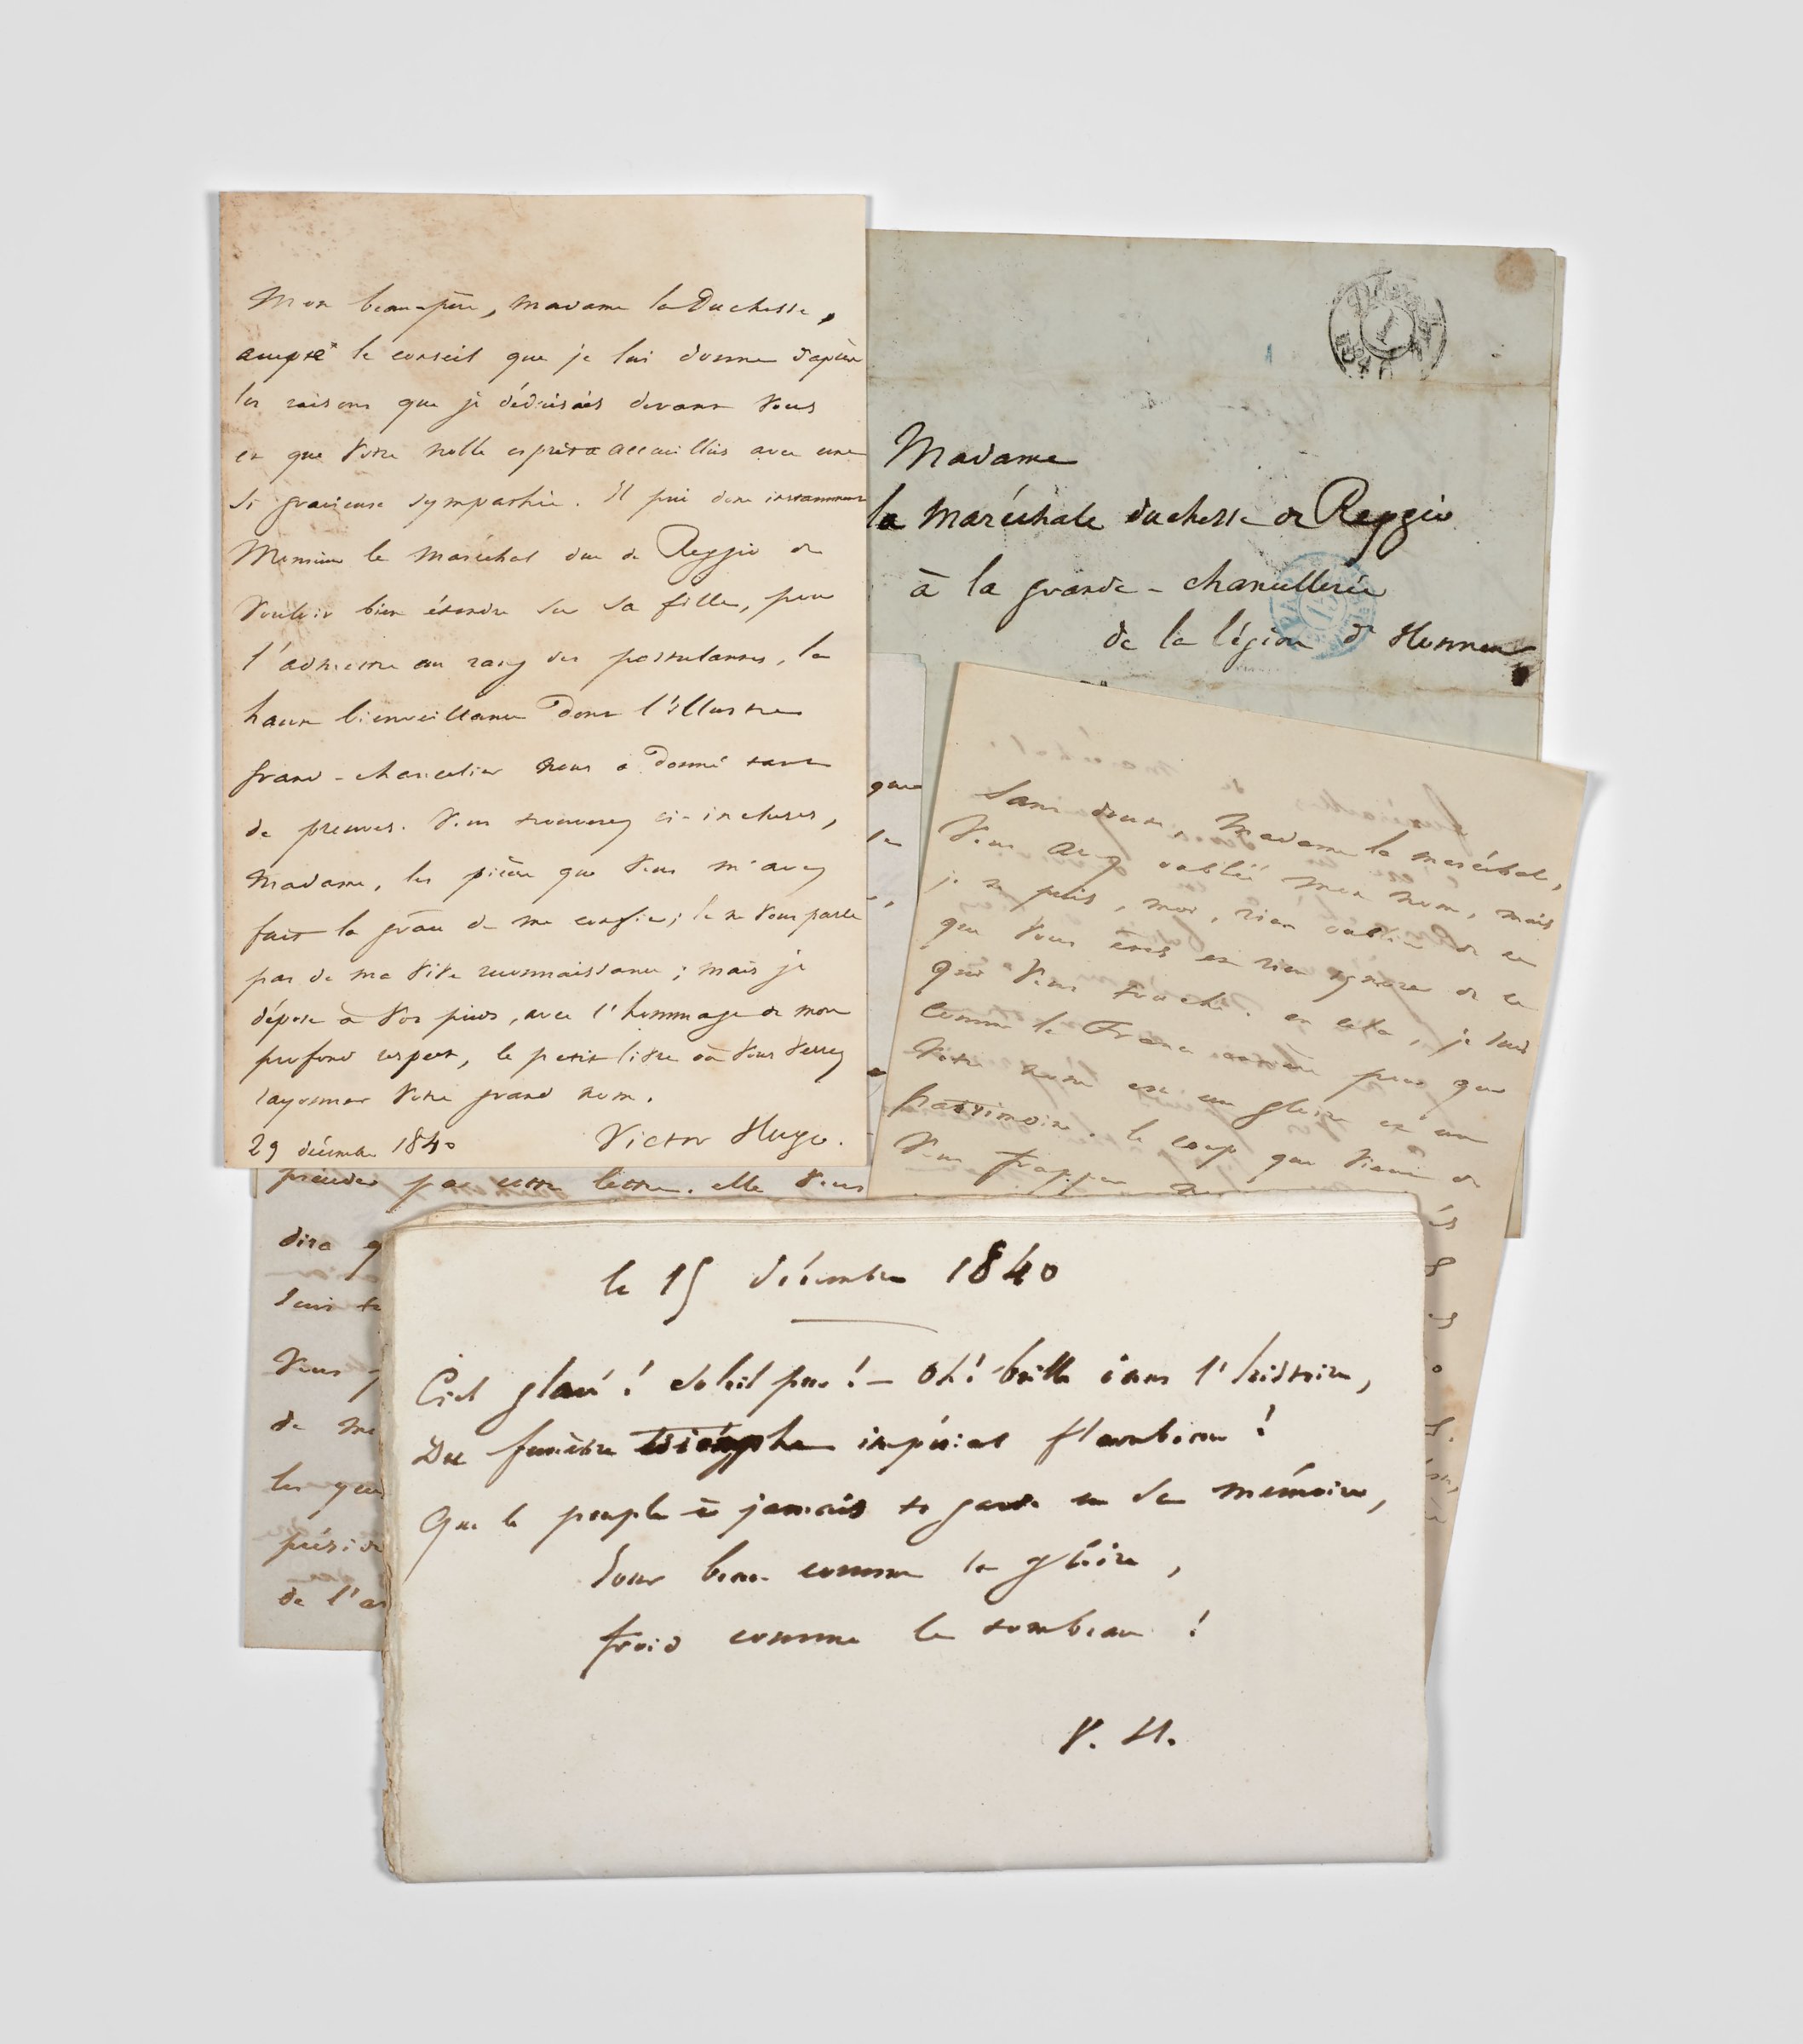 Mon beau-père, madame la Duchesse,
accepte le conseil que je lui donne d'après
les raisons que je déduisais devant vous
et que votre noble esprit a accueillies avec une
si gracieuse sympathie. Il prie donc instamment
Monsieur le maréchal duc de Reggio de
vouloir bien étendre sur sa fille, pour
l'admettre au rang des postulantes, la
haute bienveillance dont l'illustre
grand-chancelier nous a donné tant
de preuves. Vous trouverez ci-incluses,
Madame, les pièces que vous m'avez
fait la grâce de me confier; je ne vous parle
pas de ma vive reconnaissance; mais je
dépose à vos pieds, avec l'hommage de mon
profond respect, le petit livre où vous verrez
rayonner votre grand nom.
29 décembre 1840 Victor Hugo.
Madame
la Maréchale duchesse de Reggio
à la grande-chancellerie
de la légion d'Honneur
que
Sans doute, Madame la maréchale,
vous avez oublié mon nom, mais
je ne puis, moi, rien oublier de ce
que vous êtes et rien ignorer de ce
qui vous touche. en cela, je suis
comme la France entière pour qui
votre nom est une gloire et un
patrimoine. le coup qui vient de
vous frapper
par cette lettre. elle vous
dira
vous
de me
les yeux
de l'ar
le 15 décembre 1840
Ciel glacé! soleil pur! — Oh! brille dans l'histoire,
Du funèbre triomphe impérial flambeau!
Que le peuple à jamais te garde en sa mémoire,
Jour beau comme la gloire,
froid comme le tombeau!
V. H.